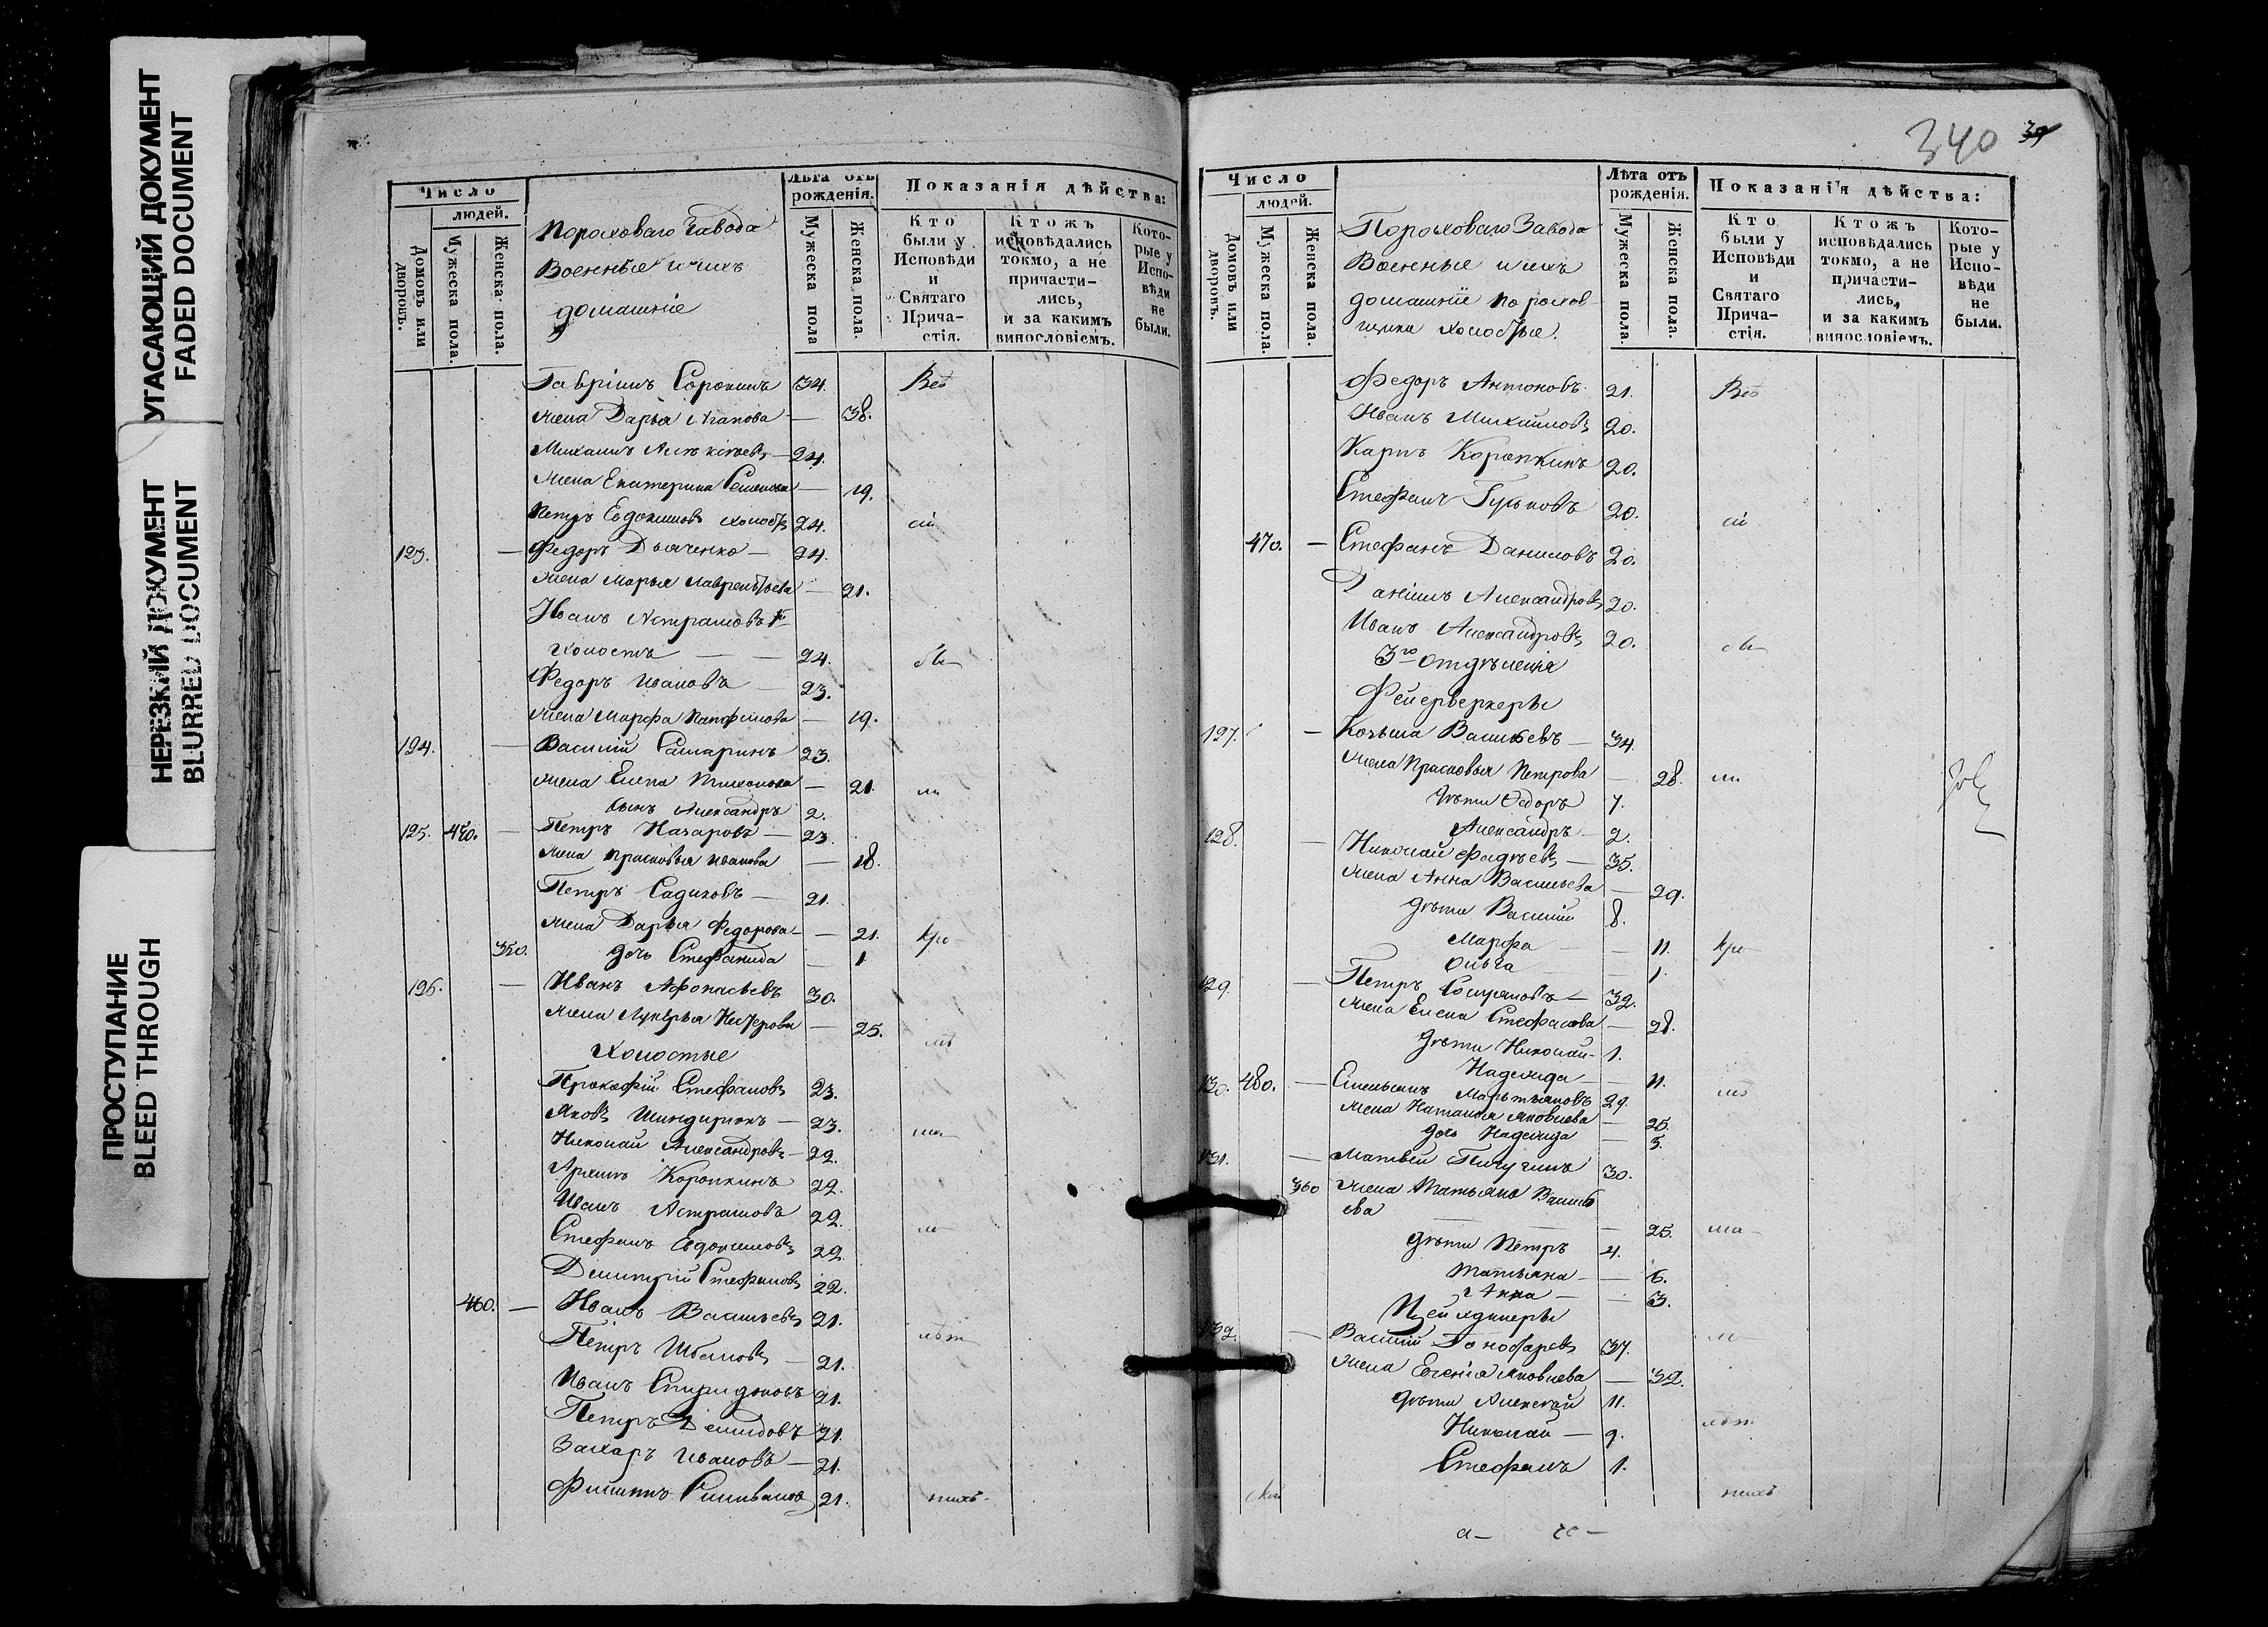 УГАСАЮЩИЙ ДОКУМЕНТ
FADED DOCUMENT
НЕРЕЗКИЙ ДОКУМЕНТ
BLURRED DOCUMENT
ПРОСТУПАНИЕ
BLEED THROUGH
Число
людей.
Домовъ или дворовъ.
Мужеска пола.
Женска пола.
Пороховаго Завода
Военные и ихъ
домашніе
Лѣта отъ рожденія.
Мужеска пола
Женска пола.
Показанія дѣйства:
Кто были у Исповѣди и Святаго Прича-стія.
Ктожъ исповѣдались токмо, а не причасти-лись, и за какимъ винословіемъ.
Кото-рые у Испо-вѣди не были.
Гавріилъ Сорокинъ 34. Всѣ
жена Дарья Агапова — 38.
Михаилъ Алексѣевъ — 24.
жена Екатерина Семенова — 19.
Петръ Евдокимовъ холостъ 24. сіи
123. — Федоръ Дьяченко — 24.
жена Марья Лаврентьева — 21.
Иванъ Астрамовъ
холостъ — — 24. бы
Федоръ Ивановъ — 23.
жена Марфа — 19.
124. — Василій Самаринъ 23.
жена Елена — 21. ли
сынъ Александръ 2.
125. 450. — Петръ Назаровъ — 23.
жена Прасковья Иванова — 18.
Петръ Садиковъ — 21.
жена Дарья Федорова — 21. кро
350. дочь Стефанида — 1
126. — Иванъ Афонасьевъ 30.
жена Лукерья Нестерова — 25. мѣ
Холостые
Прокофій Стефановъ 23.
Яковъ — 23. ма
Николай Александровъ — 22.
Архипъ Коропкинъ 22.
Иванъ Астрамовъ 22. ло
Стефанъ Евдокимовъ 22.
Димитрій Стефановъ 22.
460. — Иванъ Васильевъ 21.
Петръ — 21. лѣт
Иванъ Спиридоновъ 21.
Петръ Демидовъ 21.
Захаръ Ивановъ — 21.
Филиппъ Селивановъ 21. нихъ
340 39
Число
людей.
Домовъ или дворовъ.
Мужеска пола.
Женска пола.
Пороховаго Завода
Военные и ихъ
домашніе порохов
щики холостые.
Лѣта отъ рожденія.
Мужеска пола
Женска пола.
Показанія дѣйства:
Кто были у Исповѣди и Святаго Прича-стія.
Ктожъ исповѣдались токмо, а не причасти-лись, и за какимъ винословіемъ.
Кото-рые у Испо-вѣди не были.
Федоръ Антоновъ 21. Всѣ
Иванъ Михайловъ 20.
Карпъ Коропкинъ 20.
Стефанъ Гурьковъ 20. сіи
470. — Стефанъ Даниловъ 20.
Даніилъ Александровъ 20.
Иванъ Александровъ 20. бы
3го отдѣленія
Фейерверкеры
127. — Козьма Васильевъ — 34.
жена Прасковья Петрова — 28. ли
дѣти Ѳедоръ 7.
Александръ 2.
128. — Николай Фадѣевъ — 35.
жена Анна Васильева — 29.
дѣти Василій 8.
Марфа — — 11. кро
Ольга — 1.
129. — Петръ — 32.
жена Елена Стефанова — 28.
дѣти Николай — 1.
Надежда — — 11.
130. 480. — Емельянъ Мартьяновъ 29. мѣ
жена Наталья Яковлева — 25.
дочь Надежда — 3.
131. — Матвей Пичугинъ 30.
360 жена Татьяна Василь
ева — — 25. ма
дѣти Петръ 4.
Татьяна — — 6.
Анна — — 3.
Цейхдинеры
132. — Василій 37. ло
жена Евгенія Яковлева — 32.
дѣти Алексѣй 11.
Николай — 9. лѣт
Стефанъ 1.
нихъ